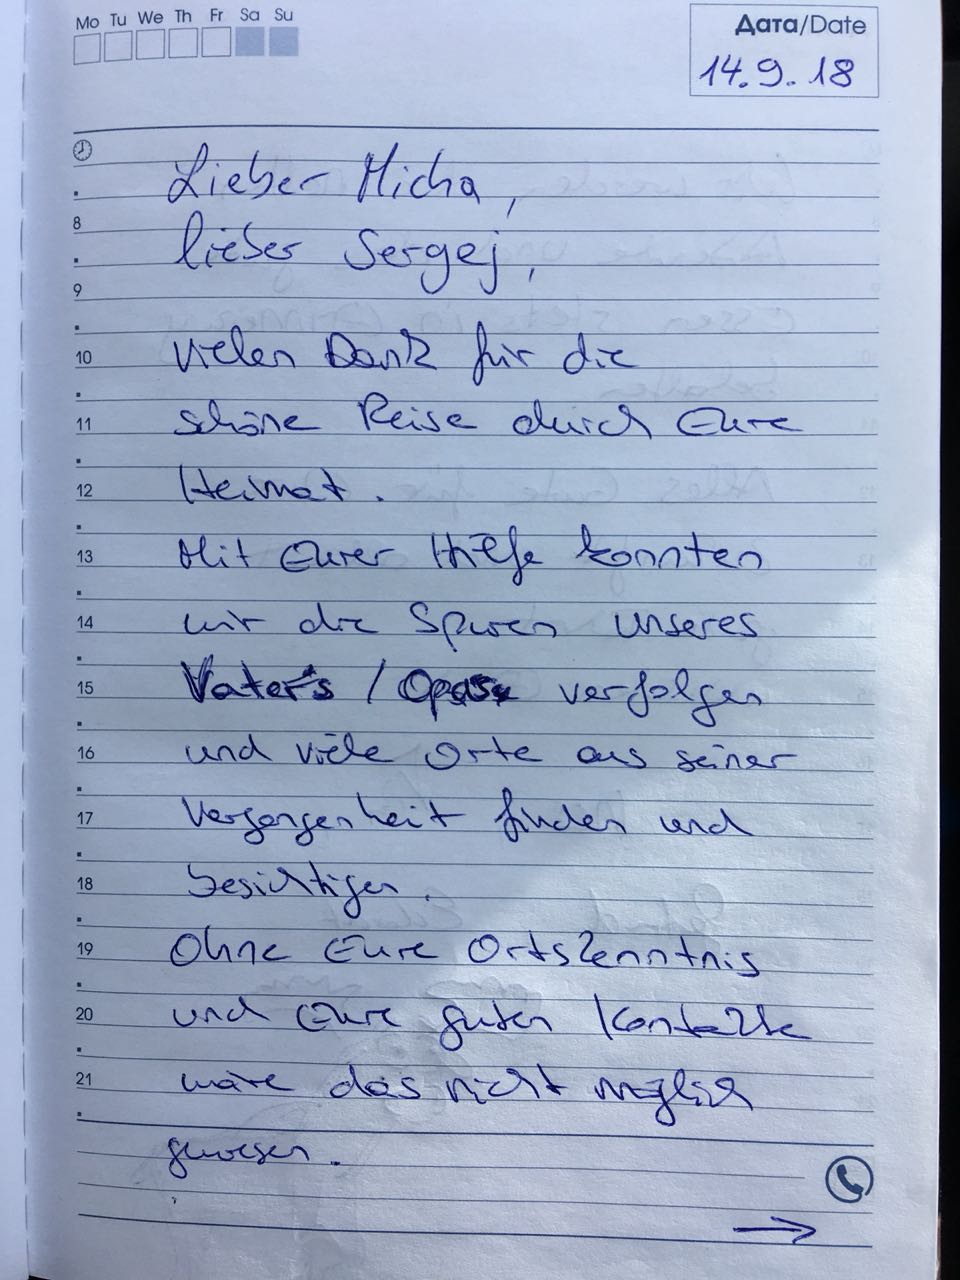 Mo Tu We Th Fr Sa Su
Дата/Date
14.9.18
Lieber Micha,
8
lieber Sergej,
9
10 vielen Dank für die
11 schöne Reise durch Eure
12 Heimat.
13 Mit Eurer Hilfe konnten
14 wir die Spuren unseres
15 Vaters / Opas verfolgen
16 und viele Orte aus seiner
17 Vergangenheit finden und
18 besichtigen.
19 Ohne Eure Ortskenntnis
20 und Eure guten Kontakte
21 wäre das nicht möglich
gewesen.